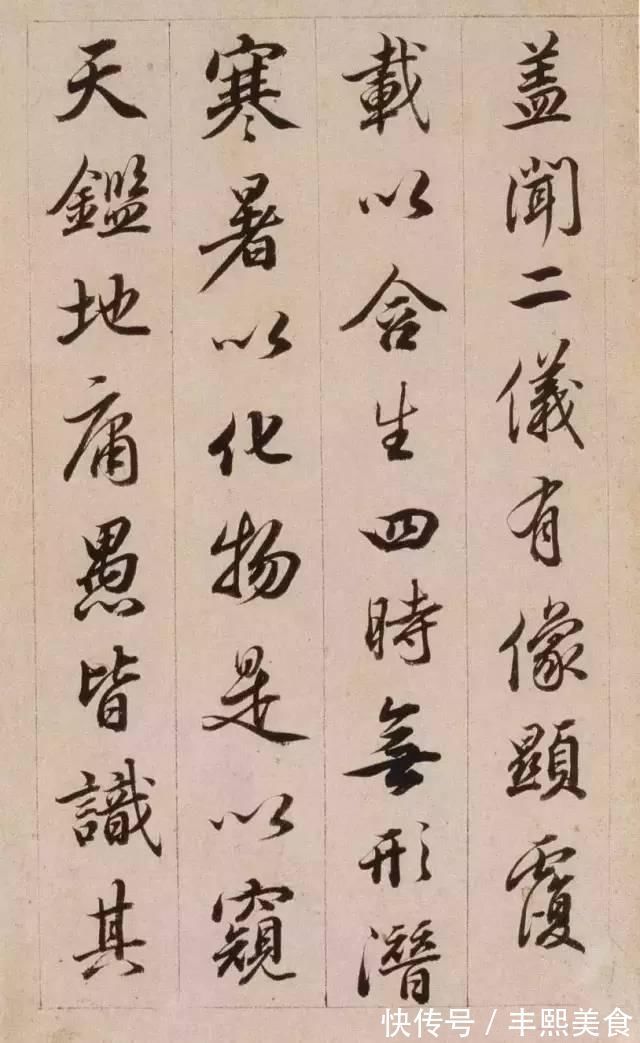 盖聞二儀有像顯覆
載以含生四時無形潛
寒暑以化物是以窺
天鑑地庸愚皆識其
快传号/丰熙美食